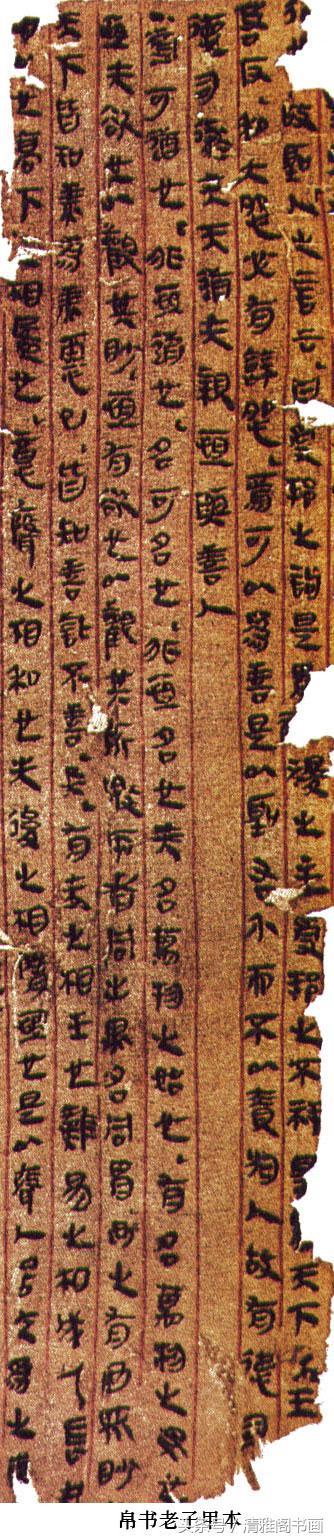 故聖人之言云曰受邦之訽是胃稷之主受邦之不祥是胃天下之王
言反和大怨必有餘怨焉可以為善是以聖右介而不以責於人故有德司
德司徹夫天道无親恒與善人
道可道也非恒道也名可名也非恒名也无名萬物之始也有名萬物之母也
恒无欲也以觀其眇恒有欲也以觀其所噭兩者同出異名同胃玄之有玄眾眇
天下皆知美為美惡已皆知善訾不善矣有无之相生也難易之相成也長
也高下之相盈也意聲之相和也先後之相隋恒也是以聲人居无為之
帛书老子甲本
头条号/清雅阁书画